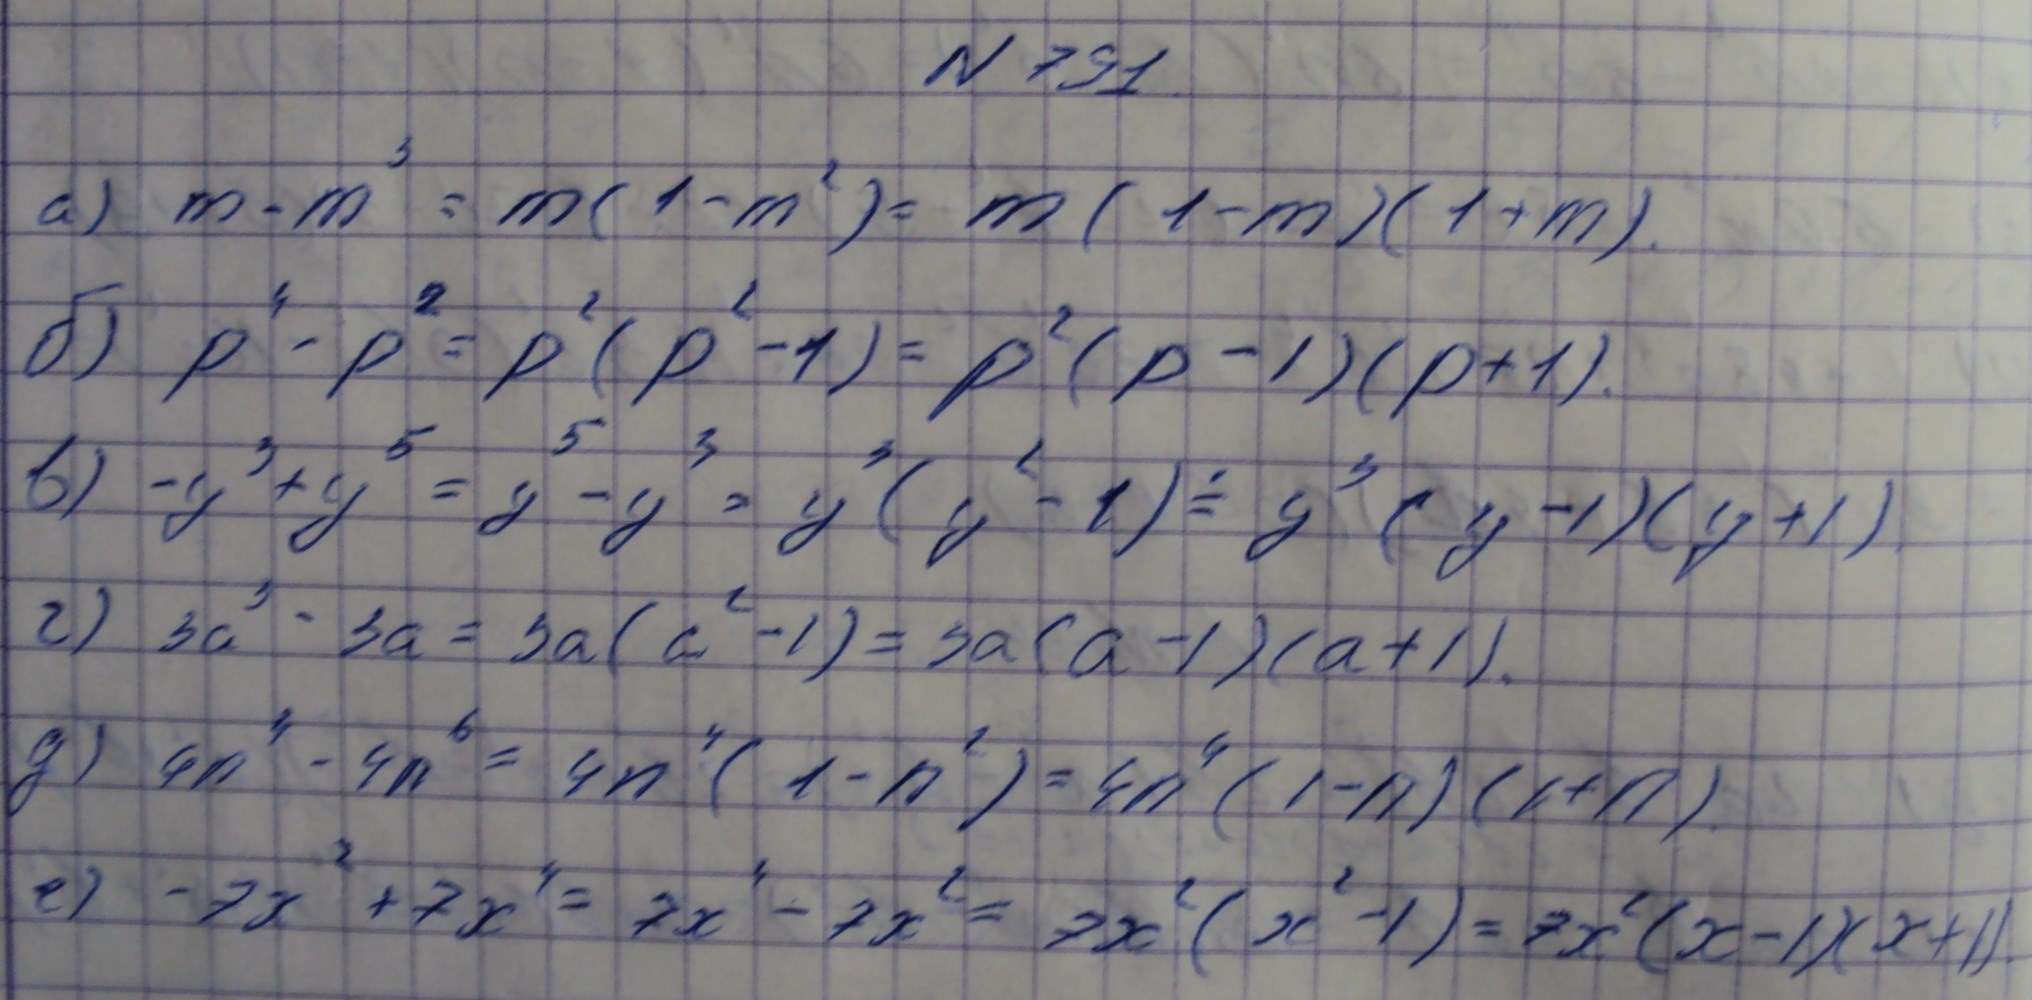 N 791.
а) m - m³ = m(1 - m²) = m(1 - m)(1 + m).
б) p⁴ - p² = p²(p² - 1) = p²(p - 1)(p + 1).
в) -y³ + y⁵ = y⁵ - y³ = y³(y² - 1) = y³(y - 1)(y + 1).
г) 3a³ - 3a = 3a(a² - 1) = 3a(a - 1)(a + 1).
д) 4n⁴ - 4n⁶ = 4n⁴(1 - n²) = 4n⁴(1 - n)(1 + n).
е) -7x² + 7x⁴ = 7x⁴ - 7x² = 7x²(x² - 1) = 7x²(x - 1)(x + 1).